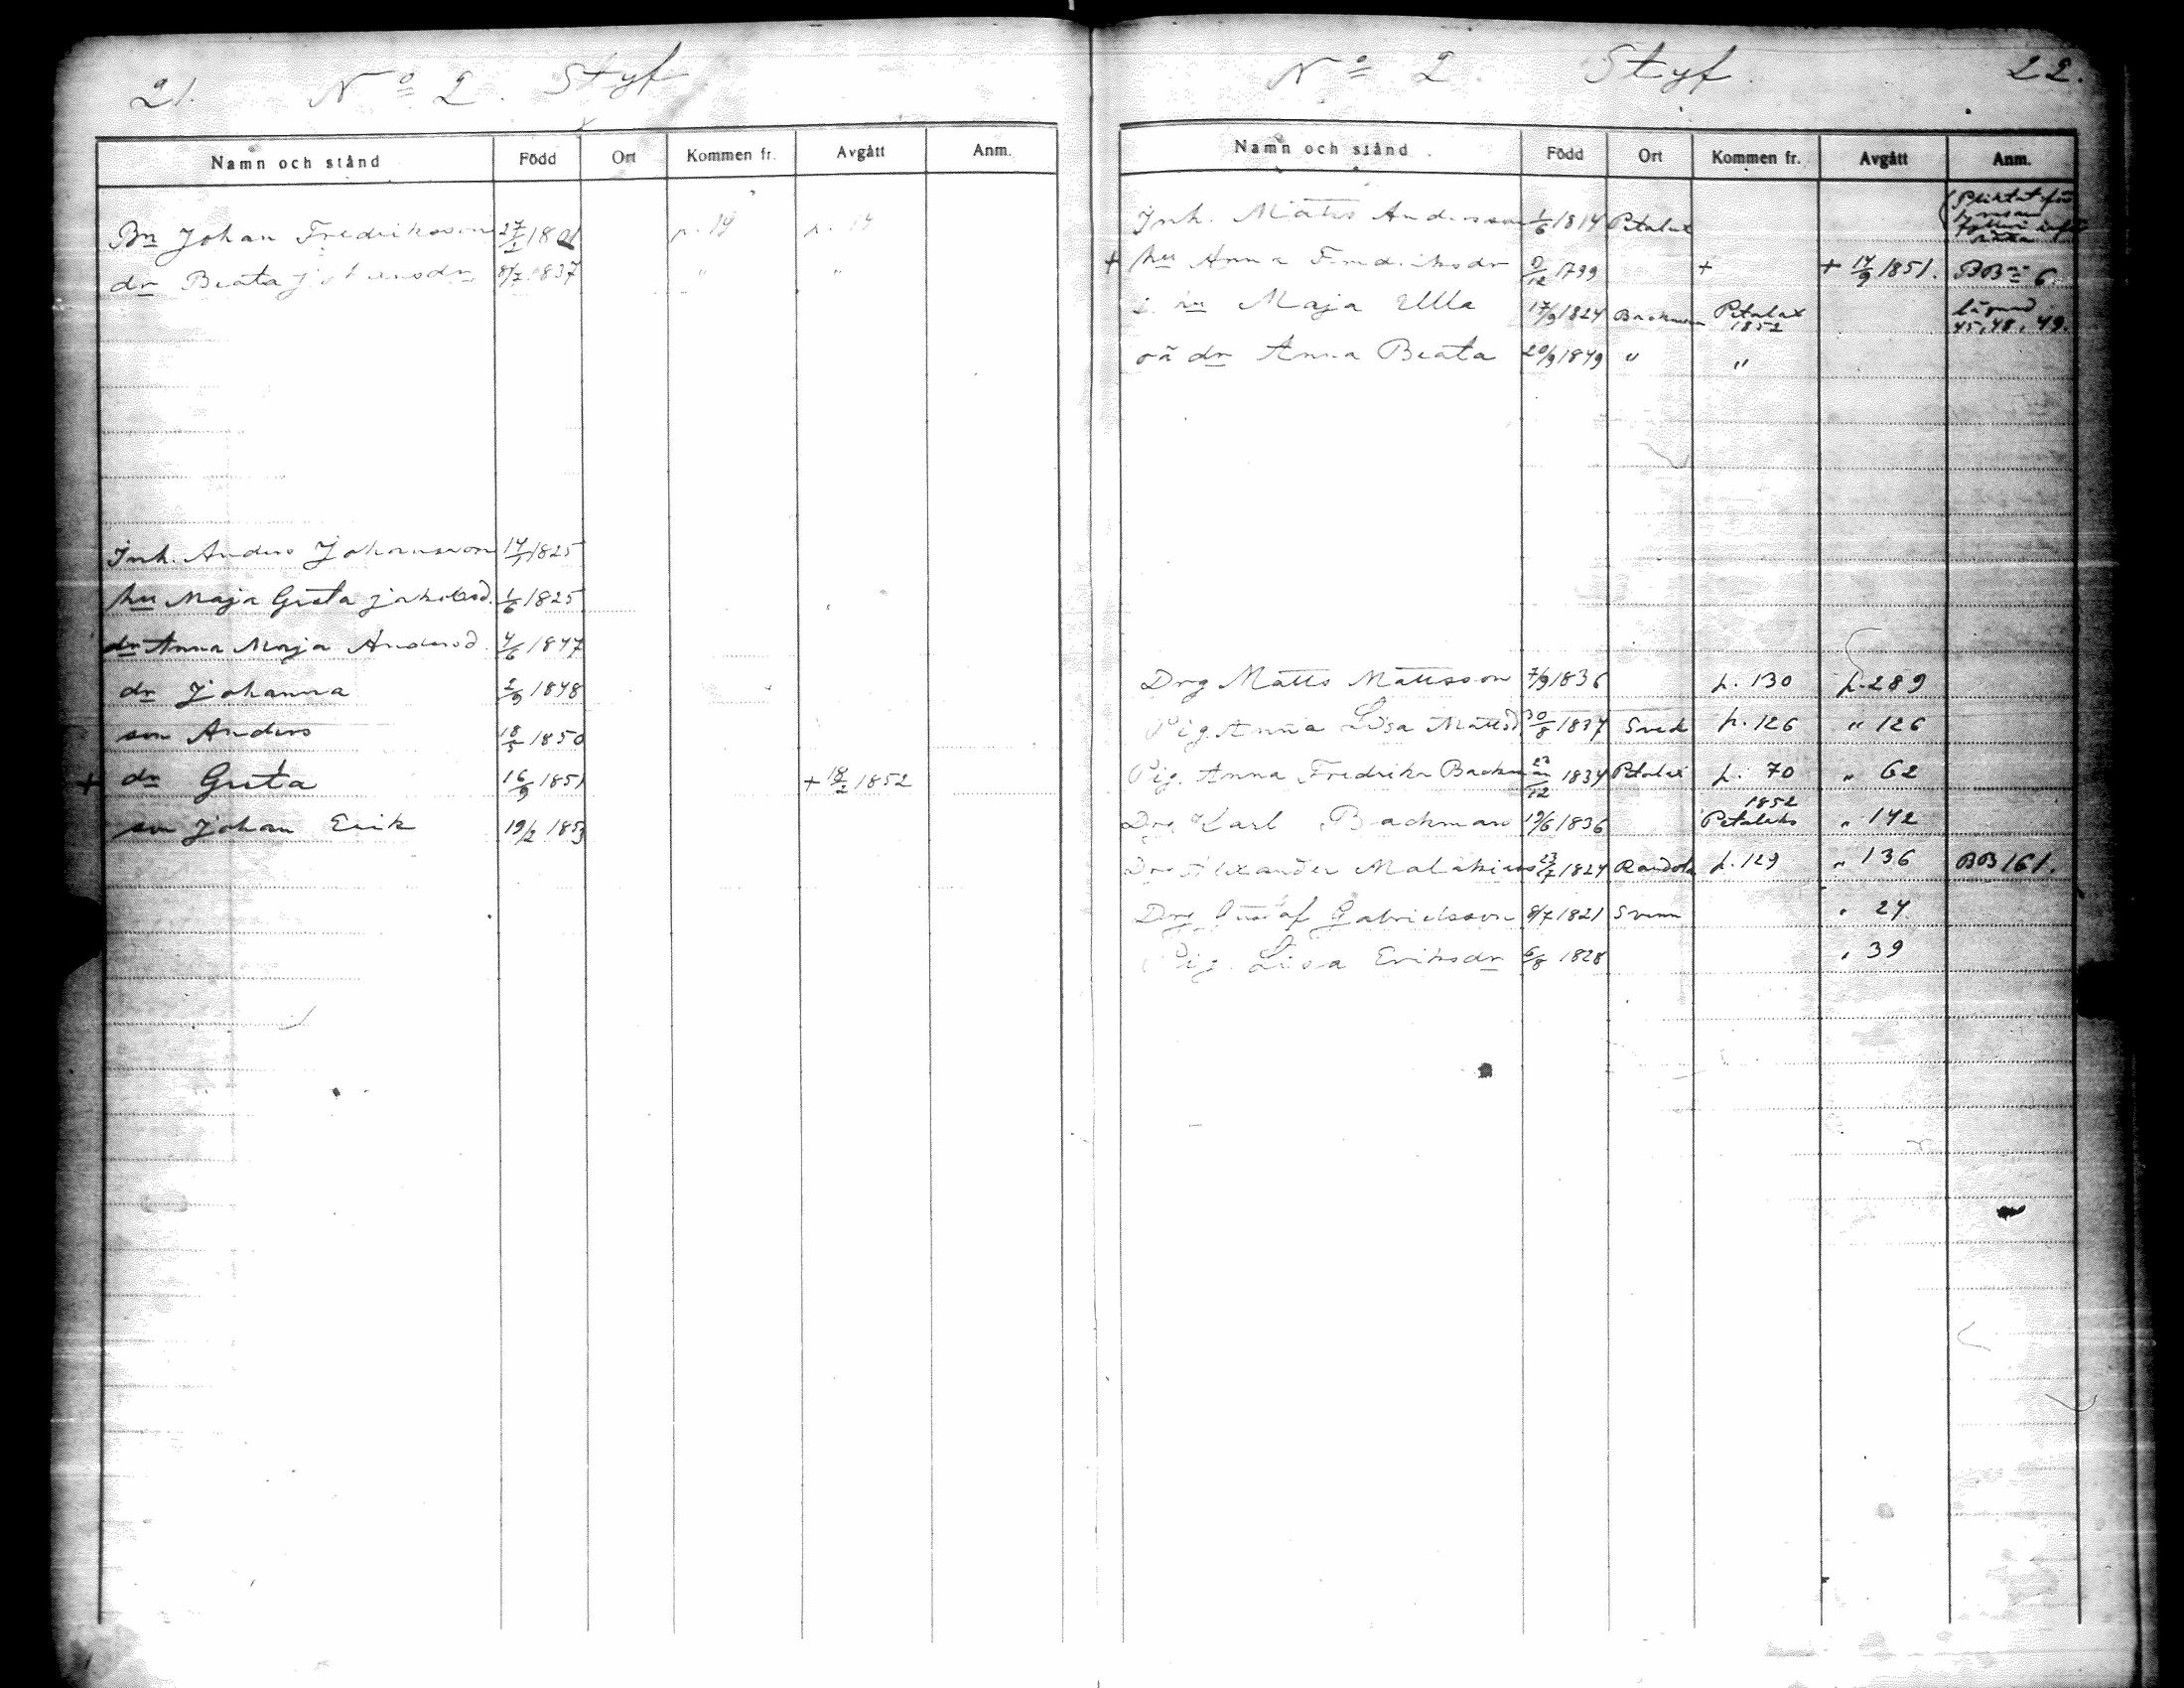 21. No 2. Styf
Namn och stånd Född Ort Kommen fr. Avgått Anm.
Bn Johan Fredriksson 27/1 1801 p. 19 p. 19
dr Beata Johansdr 8/7 1837 " "
Inh. Anders Johansson 1825
hu Maja Greta Jakobsd. 1/6 1825
dr Anna Maja Andersd. 4/6 1847
dr Johanna 2/9 1848
son Anders 18/5 1850
+ dr Greta 16/9 1851 + 18/2 1852
son Johan Erik 19/2 1853
No 2. Styf. 22.
Namn och stånd Född Ort Kommen fr. Avgått Anm.
Inh. Matts Andersson 1/6 1814 Petalax
+ hu Anna Fredriksdr 9/12 1799 + + 14/9 1851. BB 6.
hu Maja Ulla 17/9 1824 Backman Petalax 1852 45, 48, 49.
oä dr Anna Beata 20/9 1849 " "
Drg Matts Mattsson 7/9 1836 p. 130 p. 289
Pig. Anna Lisa Mattsd 30/8 1837 Sved p. 126 " 126
Pig. Anna Fredrika Backman 23/12 1834 Petalax p. 70 " 62
Drg Karl Backman 19/6 1836 1852 Petalaks " 142
Drg Alexander Malakias 23/7 1824 Randola p. 129 " 136 BB 161.
Drg Gustaf Gabrielsson 8/7 1821 Svenn " 24
Pig. Lisa Eriksdr 6/8 1828 " 39